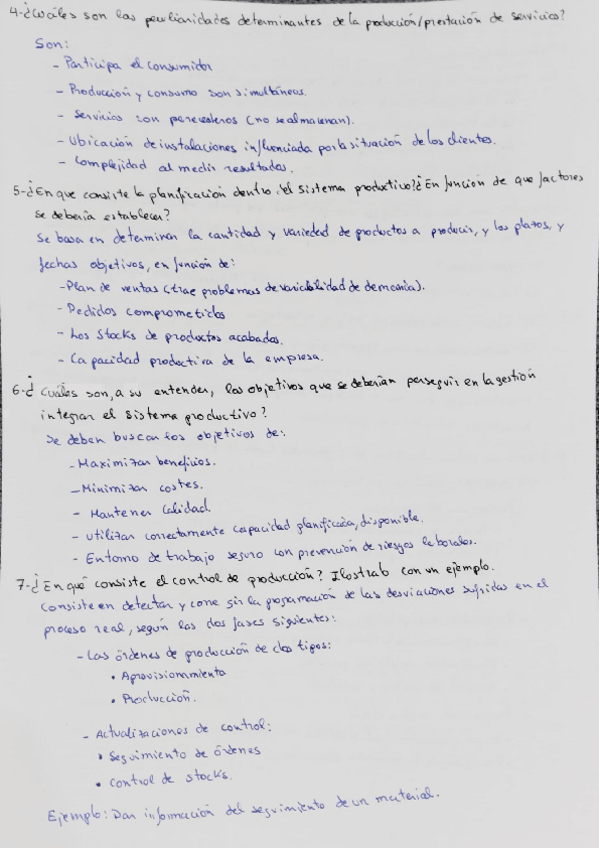 4-¿Cuáles son las peculiaridades determinantes de la producción/prestación de servicios?
Son:
- Participa el consumidor
- Producción y consumo son simultáneos.
- Servicios son perecederos (no se almacenan).
- Ubicación de instalaciones influenciada por la situación de los clientes.
- Complejidad al medir resultados.
5-¿En que consiste la planificación dentro del sistema productivo?¿En función de que factores
se debería establecer?
Se basa en determinar la cantidad y variedad de productos a producir, y los plazos, y
fechas objetivos, en función de:
- Plan de ventas (trae problemas de variabilidad de demanda).
- Pedidos comprometidos
- Los Stocks de productos acabados.
- Capacidad productiva de la empresa.
6-¿Cuáles son, a su entender, los objetivos que se deberían perseguir en la gestión
integrar el sistema productivo?
Se deben buscar los objetivos de:
- Maximizar beneficios.
- Minimizar costes.
- Mantener calidad.
- Utilizar correctamente capacidad planificada, disponible.
- Entorno de trabajo seguro con prevención de riesgos laborales.
7-¿En qué consiste el control de producción? con un ejemplo.
Consiste en detectar y corregir la programación de las desviaciones sufridas en el
proceso real, según las dos fases siguientes:
- Las órdenes de producción de dos tipos:
• Aprovisionamiento
• Producción.
- Actualizaciones de control:
• Seguimiento de órdenes
• Control de stocks.
Ejemplo: Dar información del seguimiento de un material.